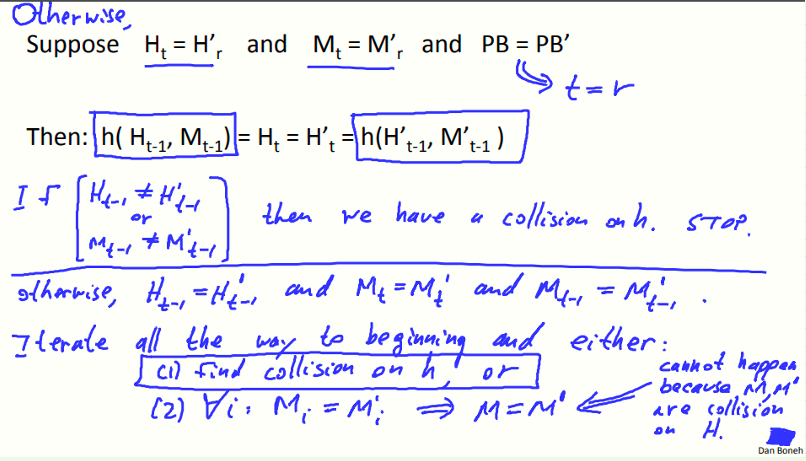 Otherwise,
Suppose Hₜ = H'ᵣ and Mₜ = M'ᵣ and PB = PB'
⇒ t = r
Then: h( Hₜ₋₁, Mₜ₋₁) = Hₜ = H'ₜ = h(H'ₜ₋₁, M'ₜ₋₁ )
If [Hₜ₋₁ ≠ H'ₜ₋₁ or Mₜ₋₁ ≠ M'ₜ₋₁] then we have a collision on h. STOP.
otherwise, Hₜ₋₁ = H'ₜ₋₁ and Mₜ = Mₜ' and Mₜ₋₁ = M'ₜ₋₁ .
Iterate all the way to beginning and either:
(1) find collision on h, or
(2) ∀i: Mᵢ = Mᵢ' ⇒ M = M'
cannot happen
because M, M'
are collision
on H.
Dan Boneh